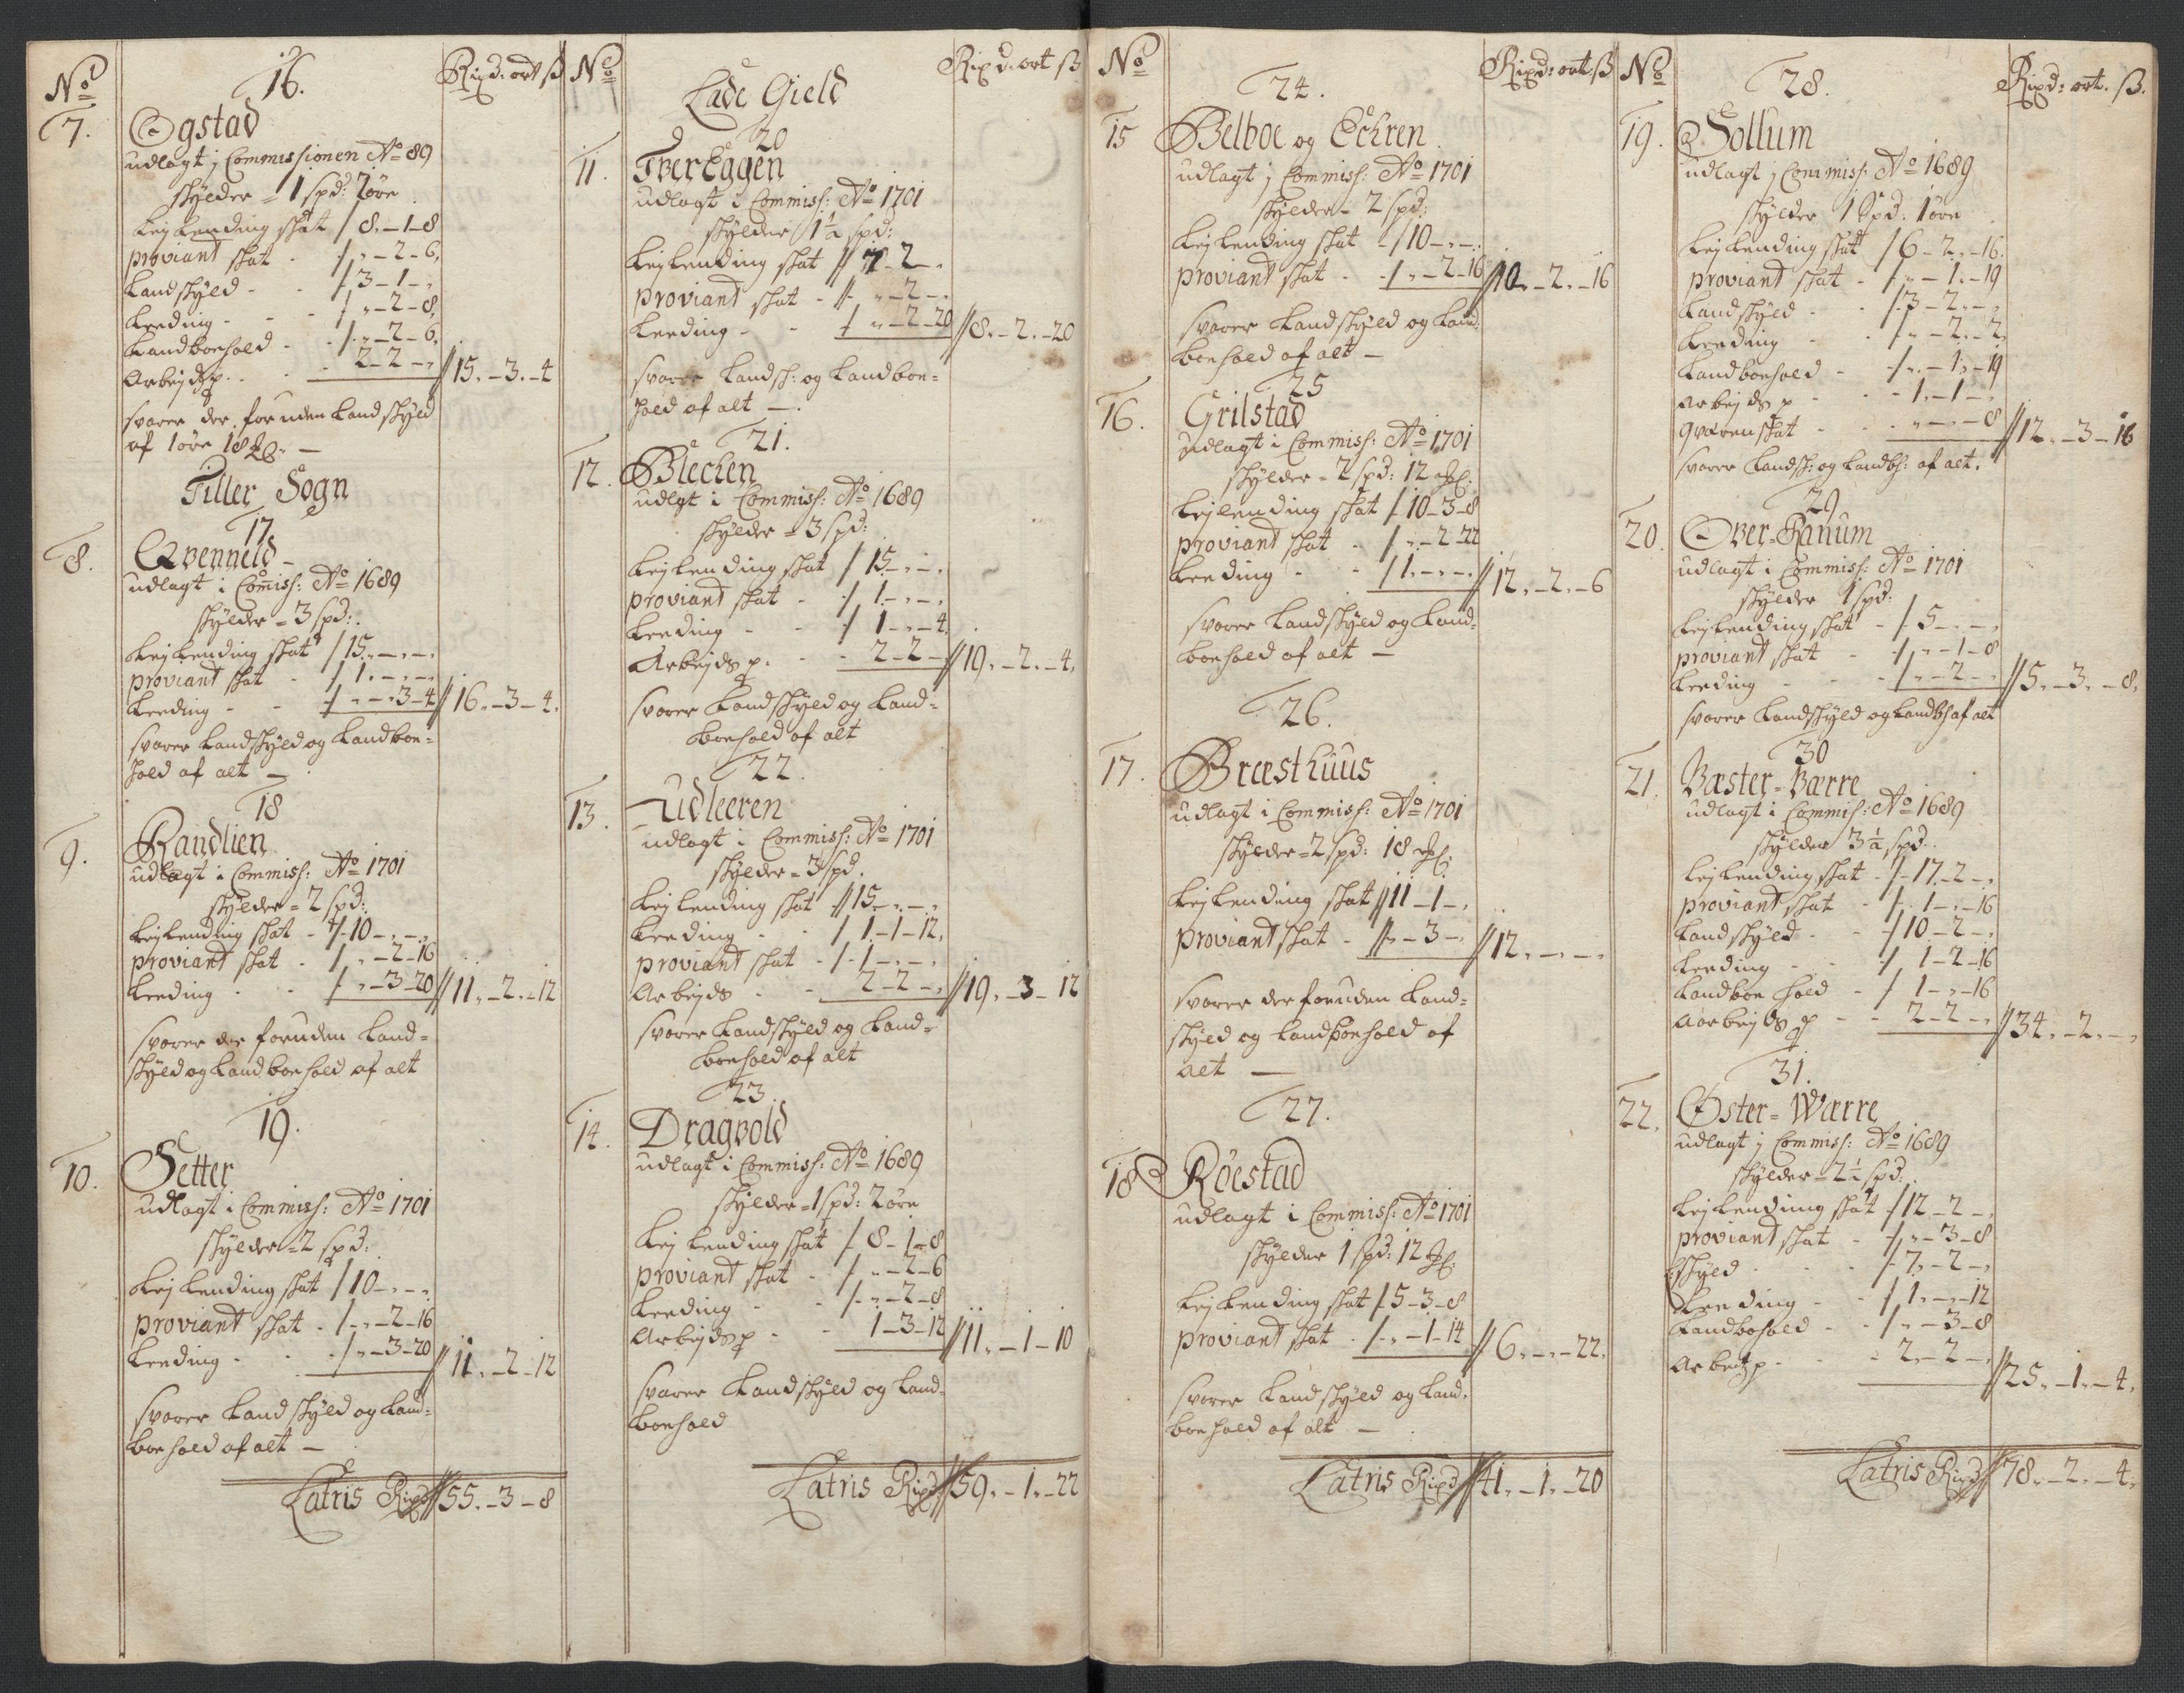 No
16.
Rixd: ort ß
7.
Øgstad
udlagt j Commissionen Ao 89
skylder = 1 spd: 2 øre
Lejlending skat / 8. - 1 - 8
proviant skat - / „ - 2 - 6.
Landskyld - - / 3 - 1 - „
Leeding - - / „ - 2 - 8.
Landboehold - / „ - 2 - 6.
Arbejds p. - - 2 - 2 - „ // 15. - 3. - 4
svarer der foruden Landskyld
af 1 øre 18
Tiller Sogn
17
8.
Qvenneld -
udlagt i Comiss: Ao 1689
skylder = 3 spd:
Lejlending skat / 15. - „ - „
proviant skat - / 1. - „ - „
Leeding - - / „ - 3 - 4 // 16. - 3 - 4.
svarer Landskyld og Landboe=
hold af alt -
18
9.
Randlien
udlagt i Commiss: Ao 1701
skylder = 2 spd:
Lejlending skat - / 10 - „ - „
proviant skat - / „ - 2 - 16
Leeding - - / „ - 3 - 20 // 11. - 2. - 12
svarer der foruden Land=
skyld og Landboehold af alt
19.
10.
Setter
udlagt i Commiss: Ao 1701
skylder = 2 spd:
Lejlending skat / 10 - „ - „
proviant skat - / „ - 2 - 16
Leeding - - / „ - 3 - 20 // 11. - 2 - 12
svarer Landskyld og Land=
boehold af alt -
Latris Rixd // 55. - 3 - 8
No
Lade Gield
Rixd: ort ß
20
11.
Tver Eggen
udlagt i Commiss: Ao 1701
skylder 1½ spd:
Lejlending skat // 7 - 2 - „
proviant skat - // „ - 2 - „
Leeding - - / „ - 2 - 20 // 8. - 2. - 20
svarer Landsk: og Landboe=
hold af alt -
21.
12.
Blecken
udlgt i Commiss: Ao 1689
skylder = 3 spd:
Lejlending skat / 15 - „ - „
proviant skat - / 1 - „ - „
Leeding - - / 1 - „ - 4.
Arbejds p. - - 2 - 2 - // 19. - 2. - 4.
svarer Landskyld og Land=
boehold af alt
22.
13.
Udleeren
udlagt i Commiss: Ao 1701
skylder = 3 spd.
Lejlending skat // 15 - „ - „
Leeding - - / 1 - 1 - 12.
proviant skat - / 1 - „ - „
Arbejds - - 2 - 2 - „ // 19. - 3 - 12
svarer Landskyld og Land=
boehold af alt
23.
14.
Dragvold
udlagt i Commiss: Ao 1689
skylder = 1 spd: 2 øre
Lejlending skat / 8 - 1 - 8
proviant skat - / „ - 2 - 6
Leeding - - / „ - 2 - 8
Arbejds p - - 1 - 3 - 12 // 11. - 1 - 10
svarer Landskyld og Land=
boehold
Latris Rixd: // 59. - 1. - 22
No
24.
Rixd: ort. ß
15
Belboe og Echren
udlagt j Commiss: Ao 1701
skylder = 2 spd:
Lejlending skat - / 10 - „ - „
proviant skat - / „ - 2 - 16 // 10. - 2. - 16
svarer Landskyld og Land=
boehold af alt -
25
16.
Grilstad
udlagt i Commiss: Ao 1701
skylder = 2 spd: 12
Lejlending skat / 10 - 3 - 8
proviant skat - / „ - 2 - 22
Leeding - - / 1. - „ - „ // 12. - 2. - 6
svarer Landskyld og Land=
boehold af alt -
26.
17.
Bræsthuus
udlagt i Commiss: Ao 1701
skylder = 2 spd: 18
Lejlending skat // 11 - 1 - „
proviant skat - // „ - 3 - „ // 12. - „ - „
svarer der foruden Land=
skyld og Landboehold af
alt -
27.
18
Røestad
udlagt i Commiss: Ao 1701
skylder 1 spd: 12
Lejlending skat / 5 - 3 - 8
proviant skat - / „ - 1 - 14 // 6. - „ - 22.
svarer Landskyld og Land=
boehold af alt -
Latris Rixd // 41. - 1. - 20
No
28.
Rixd: ort. ß.
19.
Sollum
udlagt j Commiss: Ao 1689
skylder 1 Spd: 1 øre
Lejlending skat / 6 - 2. - 16.
proviant skat - / „ - 1. - 19
Landskyld - - / 3 - 2. - „
Leeding - - / „ - 2. - 2.
Landboehold - / „ - 1. - 19
Arbejds p - - 1. - 1 - „
Qværnskat - - „ - „ - 8 // 12. - 3 - 16
svarer Landsk: og Landbh: af alt.
29
20.
Over-Ranum
udlagt i Commiss: Ao 1701
skylder 1 spd:
Lejlending skat - / 5 - „ - „
proviant skat - / „ - 1 - 8
Leeding - - / „ - 2 - „ // 5. - 3. - 8.
svarer Landskyld og Landbh af alt
30
21.
Væster-Værre
udlagt i Commiss: Ao 1689
skylder 3½ spd.
Lejlending skat - / 17 - 2 - „
proviant skat - / 1 - „ - 16
Landskyld - - / 10 - 2 - „
Leeding - - / 1 - 2 - 16
Landboehold - / 1 - „ - 16
Aarbejds p - - 2 - 2 - „ // 34. - 2. - „
31.
22.
Øster-Wærre
udlagt j Commiss: Ao 1689
skylder = 2½ spd:
Lejlending skat / 12 - 2 - „
proviant skat - / „ - 3 - 8
Lskyld - - / 7. - 2 - „
Leeding - - / 1. - „ - 12
Landbohold - - / „ - 3 - 8
Arbed p - - 2. - 2 - „ // 25. - 1. - 4.
Latris Rixd // 78. - 2. - 4.